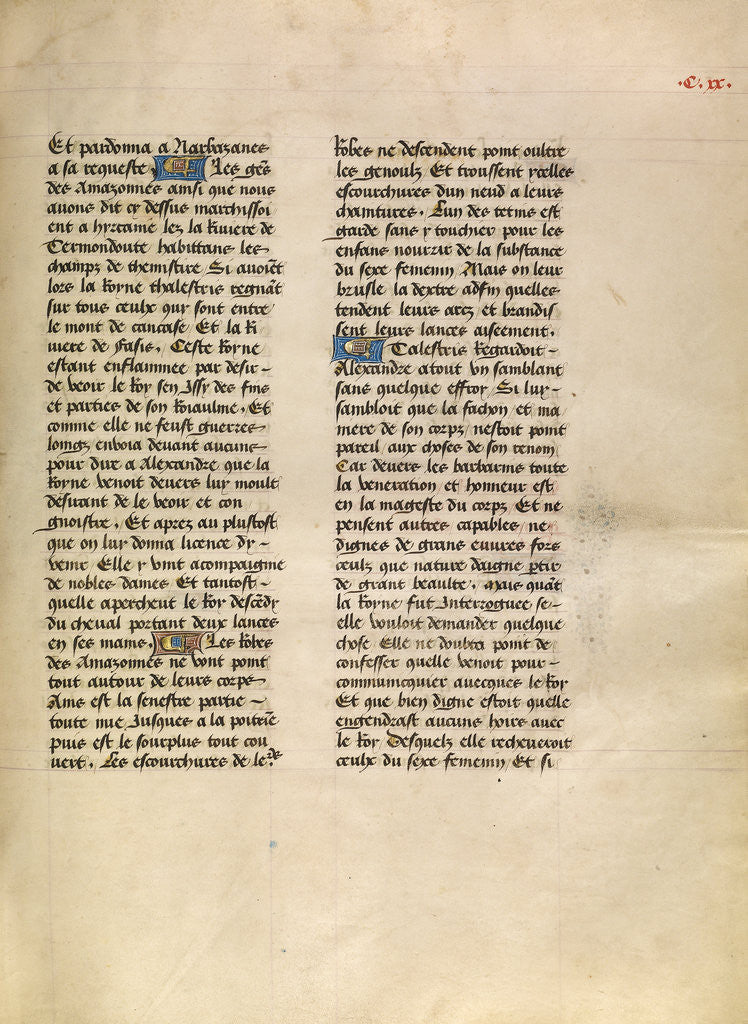 .C. xx.
Et pardonna a Narbazanes
a sa requeste. Les gēs
des Amazonnes ainsi que nous
auons dit cy dessus marchissoi
ent a hyrcanie lez la Riuiere de
Termondoute habittans les
champz de themistire Si auoiēt
lors la Royne thalestris regnāt
sur tous ceulx qui sont entre
le mont de caucase Et la Ri
uiere de fasis. Ceste Royne
estant enflammee par desir
de veoir le Roy sen Issy des fins
et parties de son Roiaulme. Et
comme elle ne feust guerres
loingz enuoia deuant aucuns
pour dire a Alexandre que la
Royne venoit deuers luy moult
desirant de le veoir et con
gnoistre. Et aprez au plustost
que on luy donna licence dy
venir Elle y vint acompaigne
de nobles dames Et tantost
quelle apercheut le Roy descēdy
du cheual portant deux lances
en ses mains. Les Robes
des Amazonnes ne vont point
tout autour de leurs corps
Ains est la senestre partie
toute nue Jusques a la poitrīe
puis est le sourplus tout cou
uert. Les escourchures de le rs
Robes ne descendent point oultre
les genoulz Et troussent ycelles
escourchures dun neud a leurs
chaintures. Lun des tetins est
garde sans y touchier pour les
enfans nourrir de la substance
du sexe feminin Mais on leur
brusle la dextre adfin quelles
tendent leurs arcz et brandis
sent leurs lances aiseement.
Talestris Regardoit
Alexandre atout vn samblant
sans quelque effroy Si luy
sambloit que la fachon et ma
niere de son corpz nestoit point
pareil aux choses de son renom
Car deuers les barbarins toute
la veneration et honneur est
en la mageste du corpz Et ne
pensent autres capables ne
dignes de grans euures fors
ceulz que nature daigne ptir
de grant beaulte. Mais quāt
la Royne fut Interroguee se
elle vouloit demander quelque
chose Elle ne doubta point de
confesser quelle venoit pour
communicquier auecques le Roy
Et que bien digne estoit quelle
engendrast aucuns hoirs auec
le Roy Desquelz elle recheueroit
ceulx du sexe feminin Et si